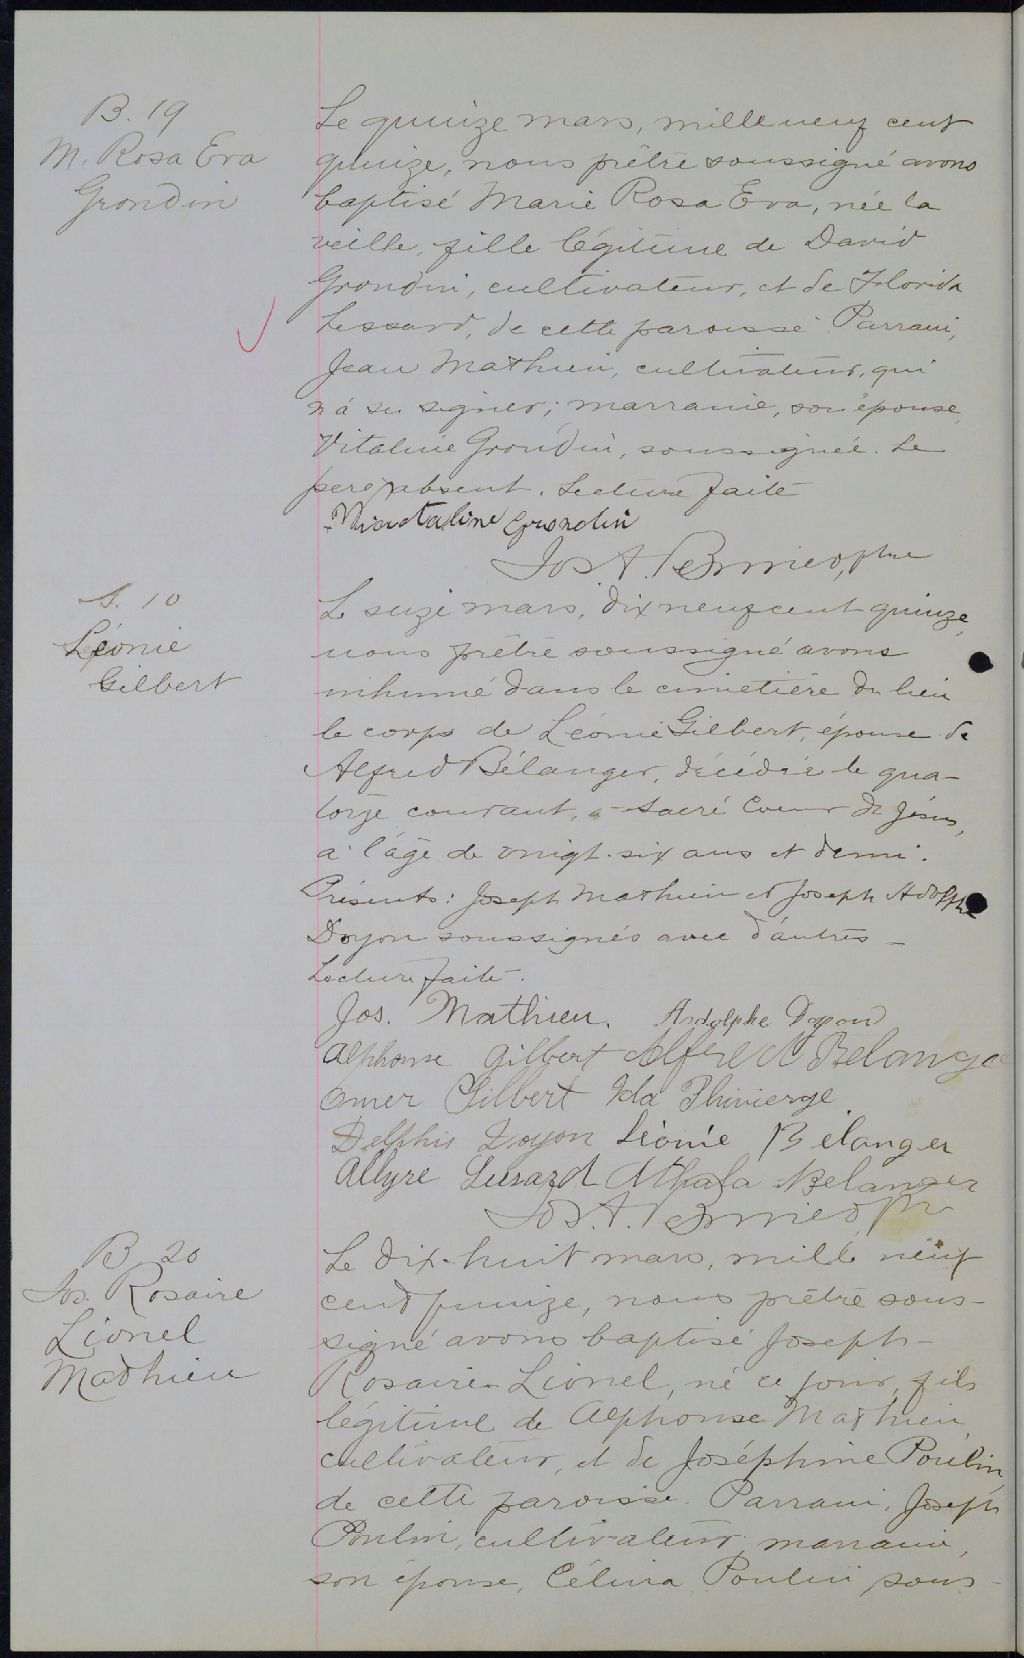 B. 19
M. Rosa Eva
Grondin
Le quinze mars, mille neuf cent
quinze, nous prêtre soussigné avons
baptisé Marie Rosa Eva, née la
veille, fille légitime de David
Grondin, cultivateur, et de Florida
Lessard, de cette paroisse. Parrain,
Jean Mathieu, cultivateur, qui
n'a su signer; marraine, son épouse,
Vitaline Grondin, soussignée. Le
père absent. Lecture faite
Grondin
Jos A. Bernier, ptre
S. 10
Léonie
Gilbert
Le seize mars, dix neuf cent quinze,
nous prêtre soussigné avons
inhumé dans le cimetière du lieu
le corps de Léonie Gilbert, épouse de
Alfred Bélanger, décédée le qua-
torze courant, à Sacré Coeur de Jésus,
à l'âge de vingt-six ans et demi.
Présents: Joseph Mathieu et Joseph Adolphe
Doyon soussignés avec d'autres -
Lecture faite.
Jos. Mathieu. Adolphe Doyon
Alphonse Gilbert Alfred Belanger
Omer Gilbert Ida Thivierge
Delphis Doyon Léonie Bélanger
Allyre Lessard Belanger
Jos. A. Bernier ptr
B 20
Jos. Rosaire
Lionel
Mathieu
Le dix-huit mars, mille neuf
cent quinze, nous prêtre sous-
signé avons baptisé Joseph-
Rosaire-Lionel, né ce jour, fils
légitime de Alphonse Mathieu,
cultivateur, et de Joséphine Poulin,
de cette paroisse. Parrain, Joseph
Poulin, cultivateur, marraine,
son épouse, Célina Poulin sous-